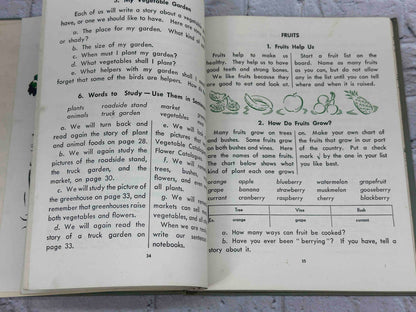 5. My Vegetable Garden
Each of us will write a story about a vegetable
have, or one we should like to have. Here are some
a. The place for my garden. What kind of
or shady?
b. The size of my garden.
c. When must I plant my
d. What vegetables shall I plant?
e. What helpers with my garden shall I
forget that some of the birds are helpers. How
6. Words to Study — Use Them in Sentences
plants roadside stand market
animals truck garden vegetables
a. We will turn back and
read again the story of plant
and animal foods on page 28.
b. We will study again the
pictures of the roadside stand,
the truck garden, and the
market, on page 30.
c. We will study the picture of
the greenhouse on page 33, and
remember that greenhouses raise
both vegetables and flowers.
d. We will again read the
story of a truck garden on
page 33.
e. We will
the pictures of
Vegetable Catalog
Flower Catalog
f. We will
trees, bushes,
flowers, and
all plants.
g. We will
markets can sell
vegetables, and
When we are
write our
notebooks.
34
FRUITS
1. Fruits Help Us
Fruits help to make us
healthy. They help us to have
good teeth and strong bones.
We like fruits because they
are good to eat and look at.
Start a fruit list on the
board. Name as many fruits
as you can, but do not allow
any in the list until you can
tell where and when it is raised.
2. How Do Fruits Grow?
Many fruits grow on trees
and bushes. Some fruits grow
on both bushes and vines. Here
are the names of some fruits.
The chart below shows what
kind of plant each one grows
on. Make your own chart of
the fruits that grow in our part
of the country. Put a check
mark √ by the one in your list
you like best.
orange apple blueberry watermelon grapefruit
grape banana strawberry muskmelon gooseberry
currant cranberry raspberry cherry blackberry
Tree Vine Bush
Ex. orange grape currant
a. How many ways can fruit be cooked?
b. Have you ever been "berrying"? If you have, tell a
story about it.
35